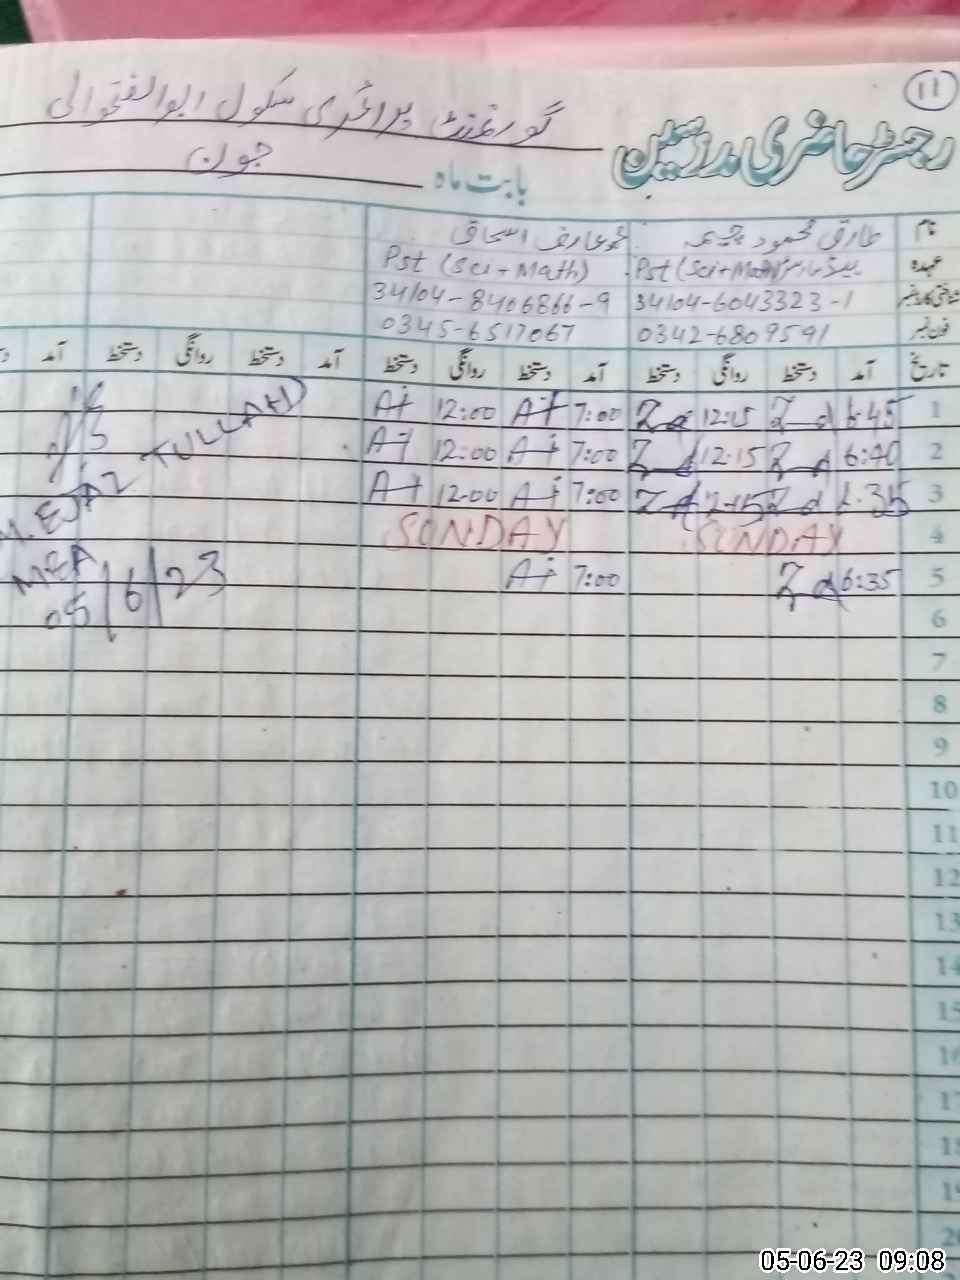 11
رجسٹر حاضری مدرسین گورنمنٹ پرائمری سکول ابوالفتحوالی
بابت ماہ جون
نام طارق محمود چیمہ محمد عارف اسحاق
عہدہ Pst (Sci+Math) Pst (Sci+Math)
شناختی کارڈ نمبر 34104-6043323-1 34104-8406866-9
فون نمبر 0342-6809591 0345-6517067
تاریخ آمد دستخط روانگی دستخط آمد دستخط روانگی دستخط آمد دستخط روانگی دستخط آمد
1 6:45 12:15 7:00 A+ 12:00 A+
2 6:40 12:15 7:00 A+ 12:00 A+
3 6:35 12:15 7:00 A+ 12:00 A+
4 SUNDAY SUNDAY
5 6:35 7:00 A+
M. EJAZ TULLAH
MEA
05/6/23
6
7
8
9
10
11
12
13
14
15
16
17
18
19
20
05-06-23 09:08